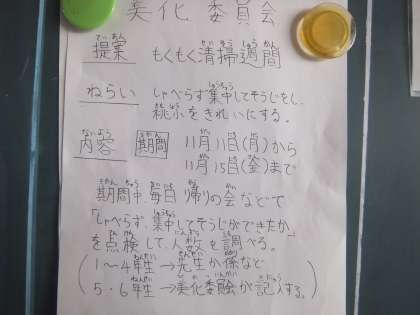 美化委員会
提案 もくもく清掃週間
ねらい しゃべらず集中してそうじをし、
桃小をきれいにする。
内容 期間 11月11日(月)から
11月15日(金)まで
期間中、毎日 帰りの会などで
「しゃべらず、集中してそうじができたか」
を点検して、人数を調べる。
1〜4年生→先生か係など
5・6年生→美化委員会が記入する。